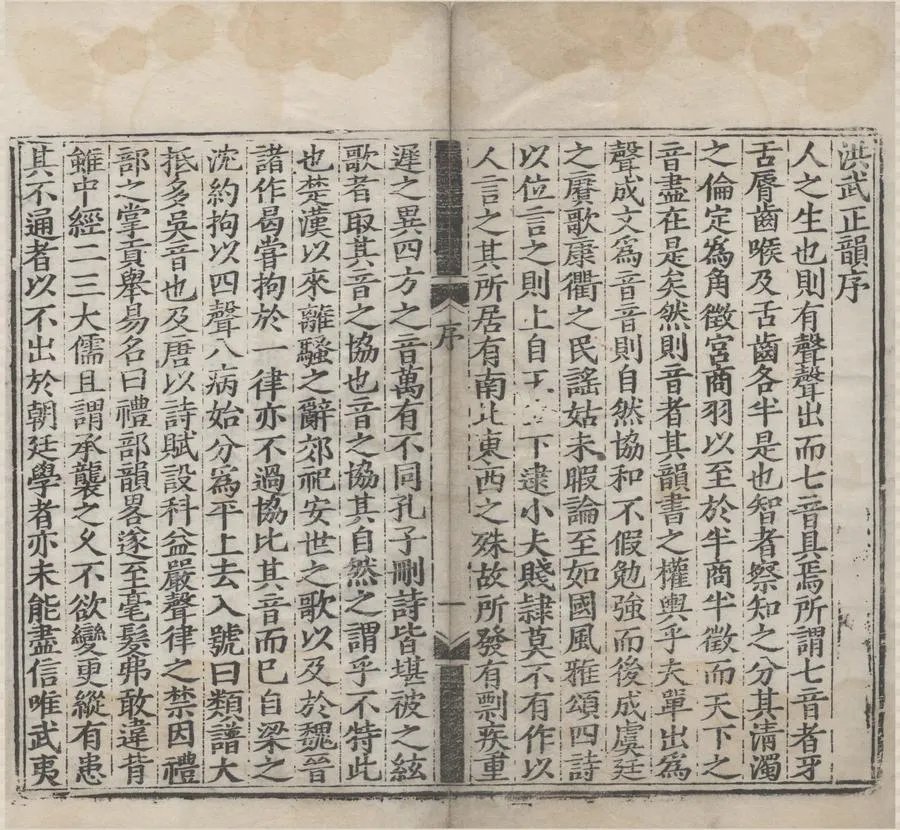 洪武正韻序
人之生也則有聲聲出而七音具焉所謂七音者牙
舌脣齒喉及舌齒各半是也智者察知之分其清濁
之倫定爲角徵宮商羽以至於半商半徵而天下之
音盡在是矣然則音者其韻書之權輿乎夫單出爲
聲成文爲音音則自然協和不假勉強而後成虞廷
之賡歌康衢之民謠姑未暇論至如國風雅頌四詩
以位言之則上自王下逮小夫賤隷莫不有作以
人言之其所居有南北東西之殊故所發有剽疾重
序
一
遲之異四方之音萬有不同孔子刪詩皆堪被之絃
歌者取其音之協也音之協其自然之謂乎不特此
也楚漢以來離騷之辭郊祀安世之歌以及於魏晉
諸作曷甞拘於一律亦不過協比其音而已自梁之
沈約拘以四聲八病始分爲平上去入號曰類譜大
抵多吳音也及唐以詩賦設科益嚴聲律之禁因禮
部之掌貢舉易名曰禮部韻畧遂至毫髮弗敢違背
雖中經二三大儒且謂承襲之久不欲變更縱有患
其不通者以不出於朝廷學者亦未能盡信唯武夷